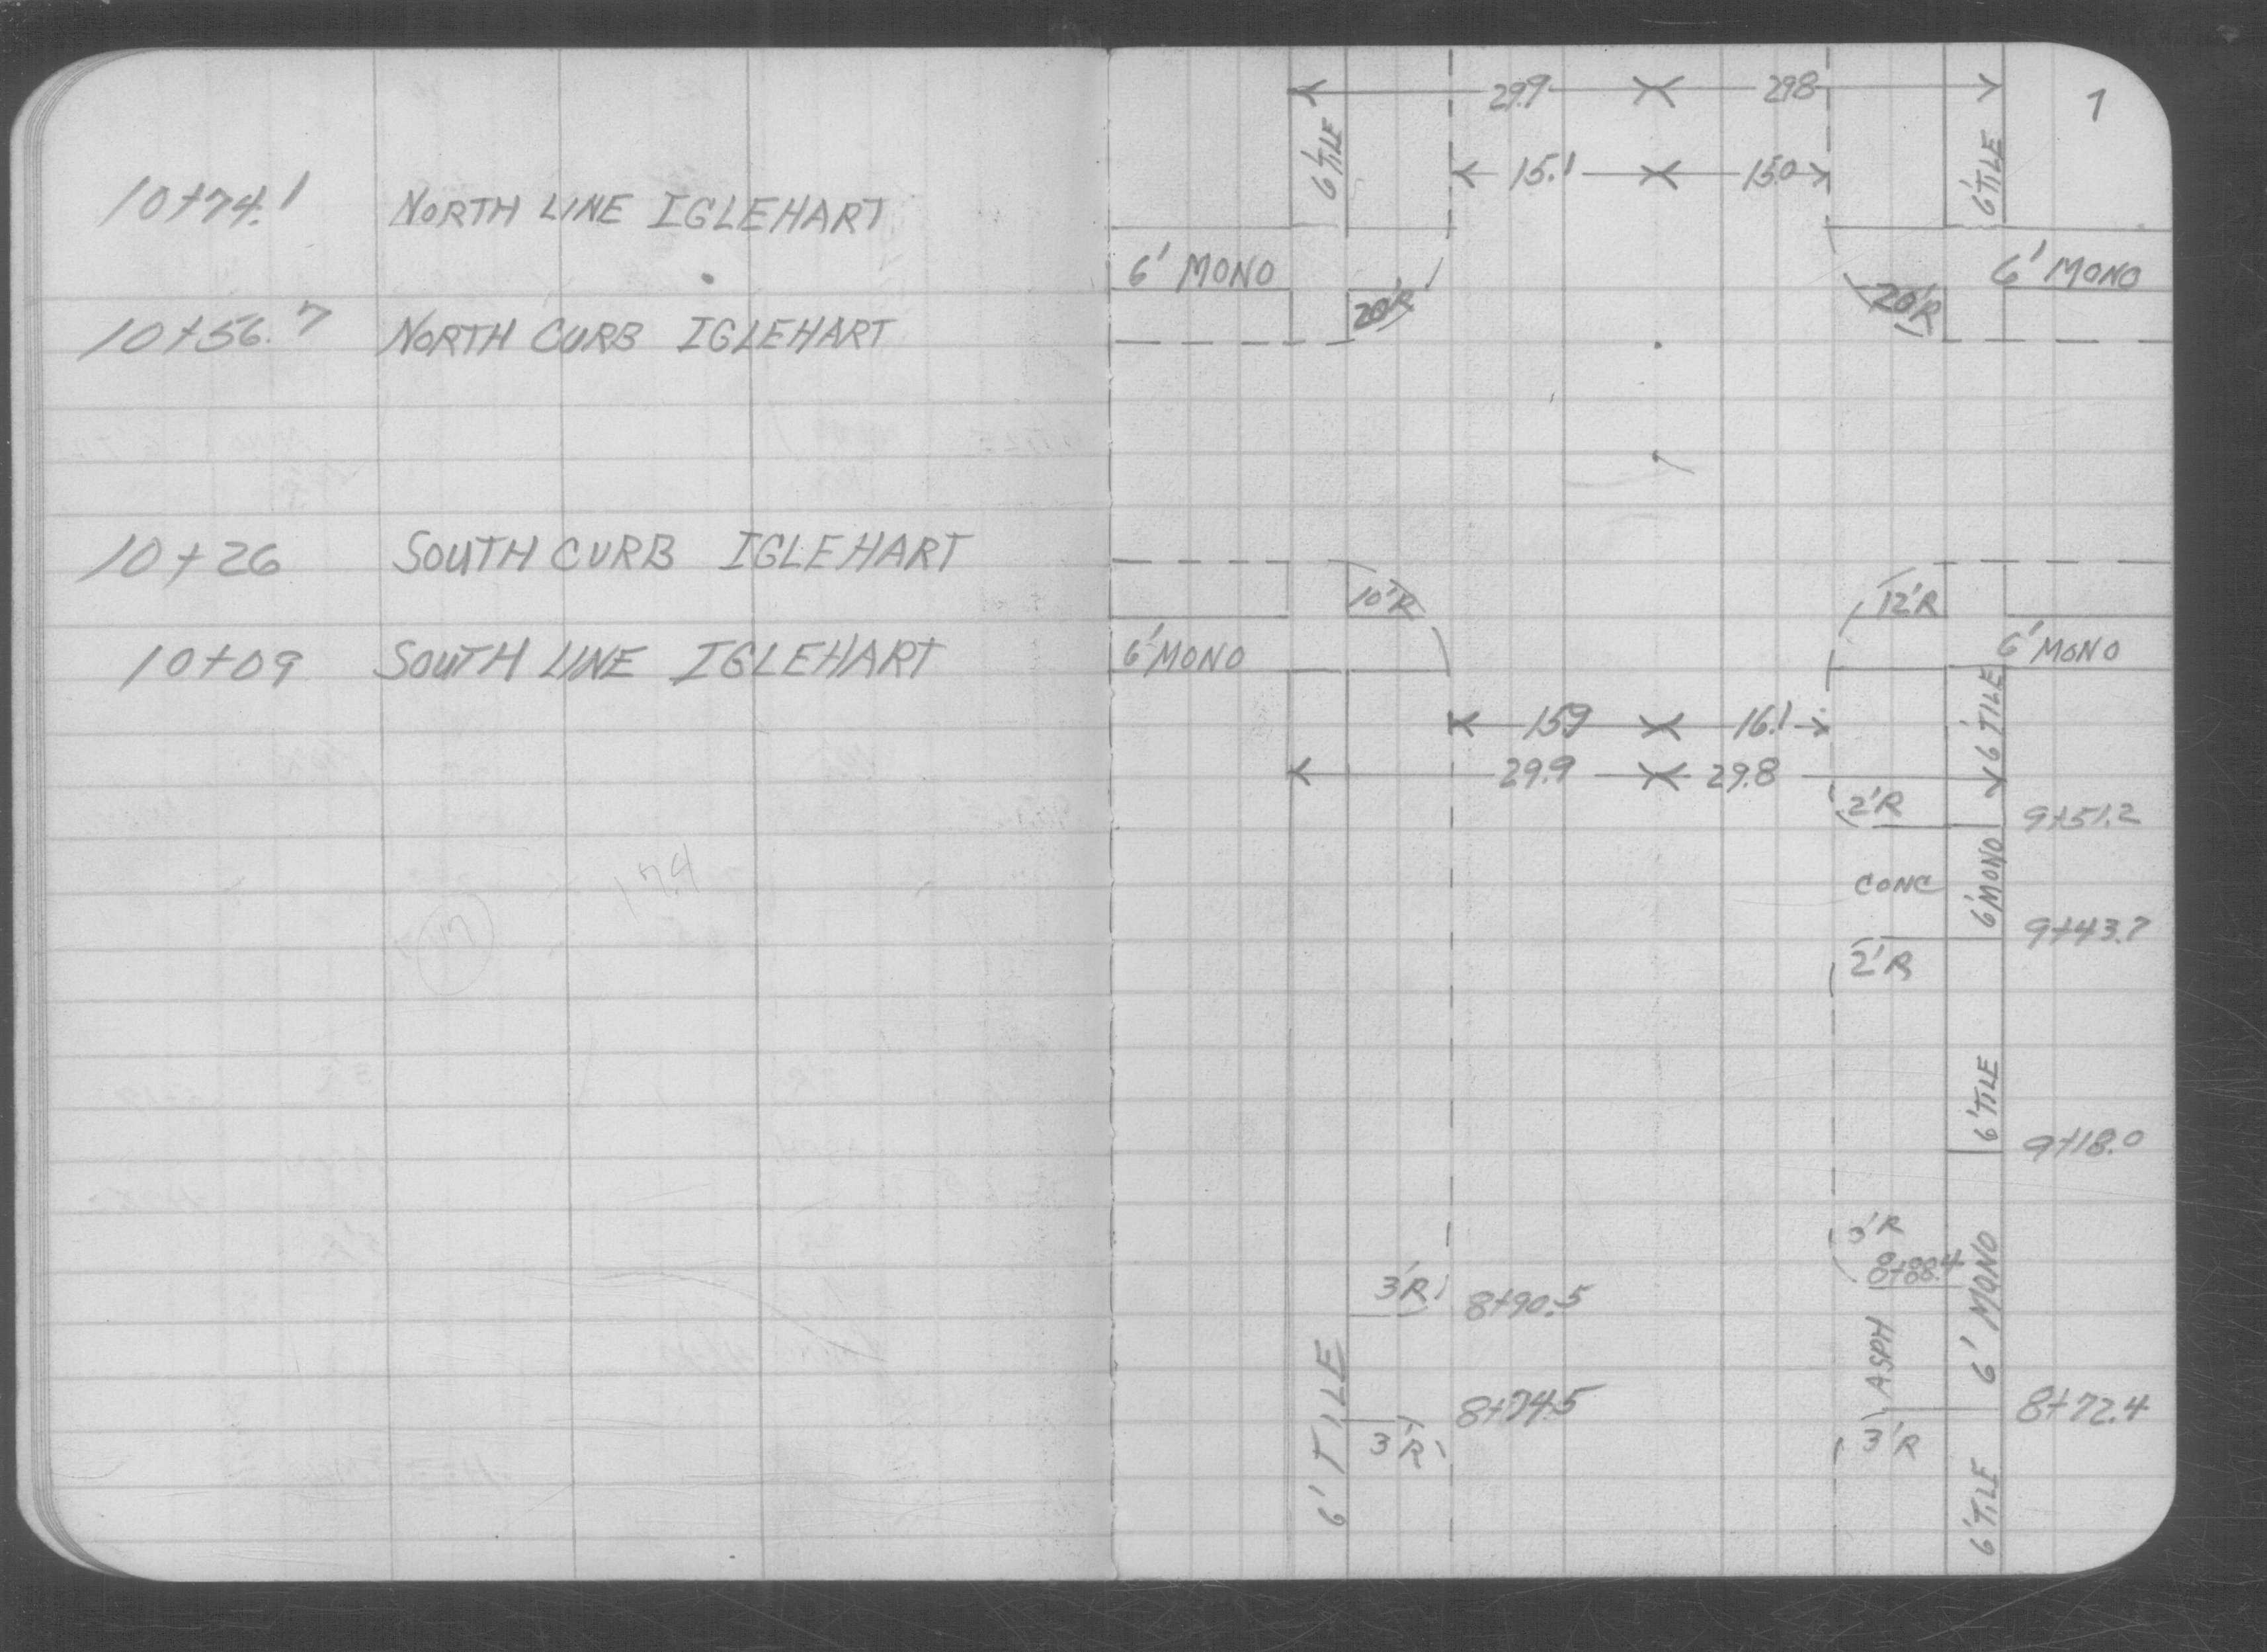 10+74.1 NORTH LINE IGLEHART
10+56.7 NORTH CURB IGLEHART
10+26 SOUTH CURB IGLEHART
10+09 SOUTH LINE IGLEHART
17.4
17
1
29.9 29.8
6' TILE 15.1 15.0 6' TILE
6' MONO 6' MONO
20'R 20'R
10'R 12'R
6' MONO 6' MONO
15.9 16.1 6' TILE
29.9 29.8
2'R 9+51.2
CONC 6' MONO
9+43.7
2'R
6' TILE
9+18.0
3'R
8+88.4
3'R 8+90.5
ASPH 6' MONO
6' TILE 8+74.5 8+72.4
3'R 3'R
6' TILE